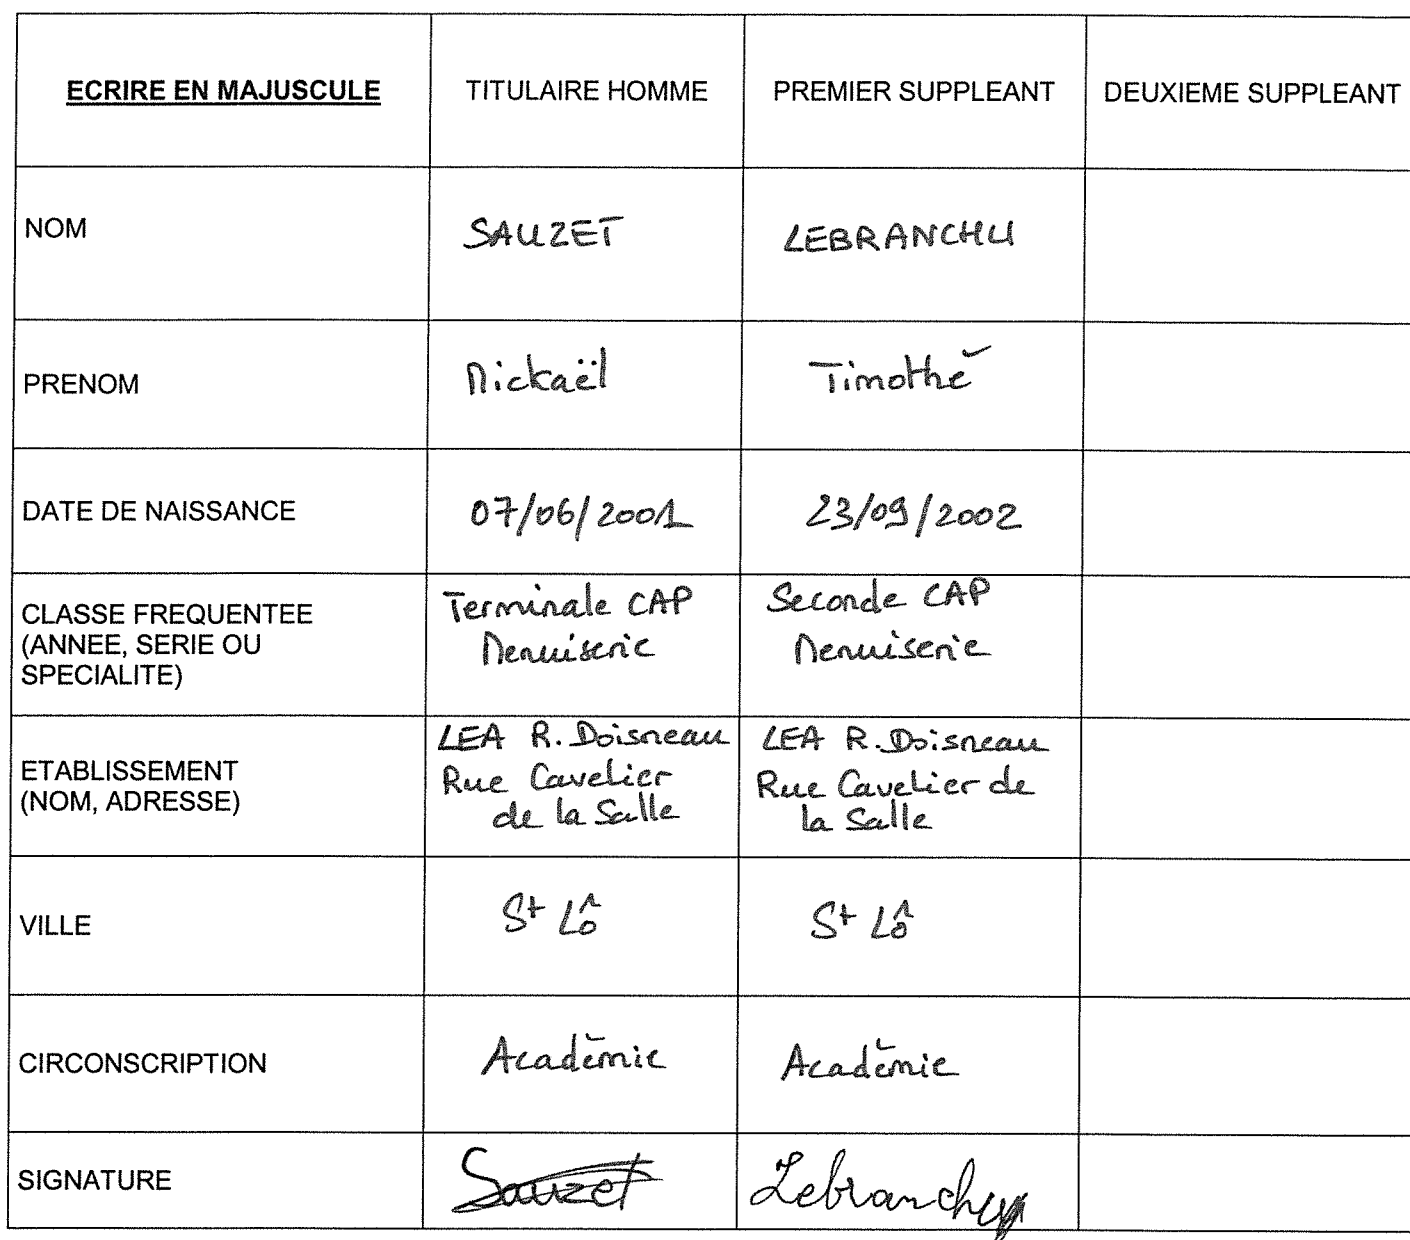 ECRIRE EN MAJUSCULE TITULAIRE HOMME PREMIER SUPPLEANT DEUXIEME SUPPLEANT
NOM SAUZET LEBRANCHU
PRENOM Mickaël Timothé
DATE DE NAISSANCE 07/06/2001 23/09/2002
CLASSE FREQUENTEE
(ANNEE, SERIE OU
SPECIALITE)
Terminale CAP
Menuiserie
Seconde CAP
Menuiserie
ETABLISSEMENT
(NOM, ADRESSE)
LEA R. Doisneau
Rue Cavelier
de la Salle
LEA R. Doisneau
Rue Cavelier de
la Salle
VILLE St Lô St Lô
CIRCONSCRIPTION Académie Académie
SIGNATURE Sauzet Lebranchu